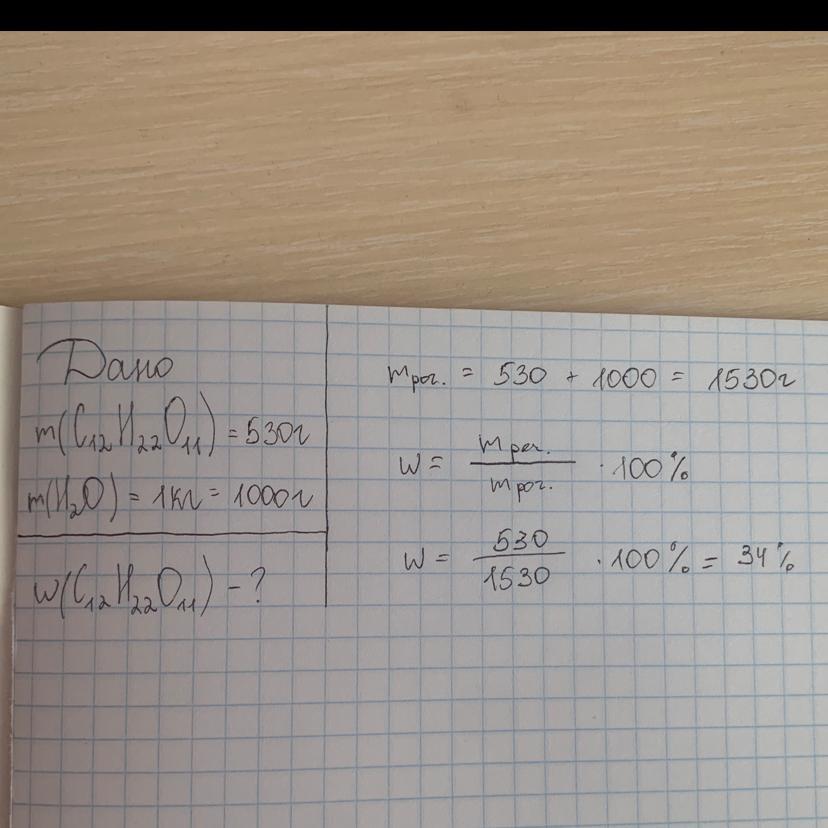 Дано
m(C₁₂H₂₂O₁₁) = 530г
m(H₂O) = 1кг = 1000г
w(C₁₂H₂₂O₁₁) - ?
mроз. = 530 + 1000 = 1530г
w = mреч. / mроз. · 100%
w = 530 / 1530 · 100% = 34%